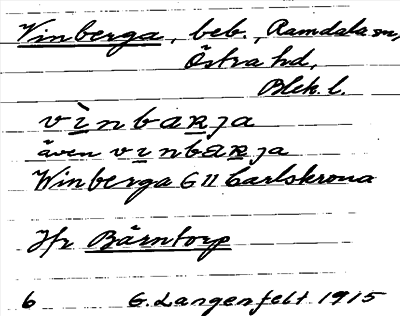 Vinberga, beb., Ramdala sn,
Östra hd,
Blek. l.
vìnbaʀja
även vınbaʀja
Winberga G 11 Carlskrona
Jfr Bärntorp
6 G. Langenfelt 1915